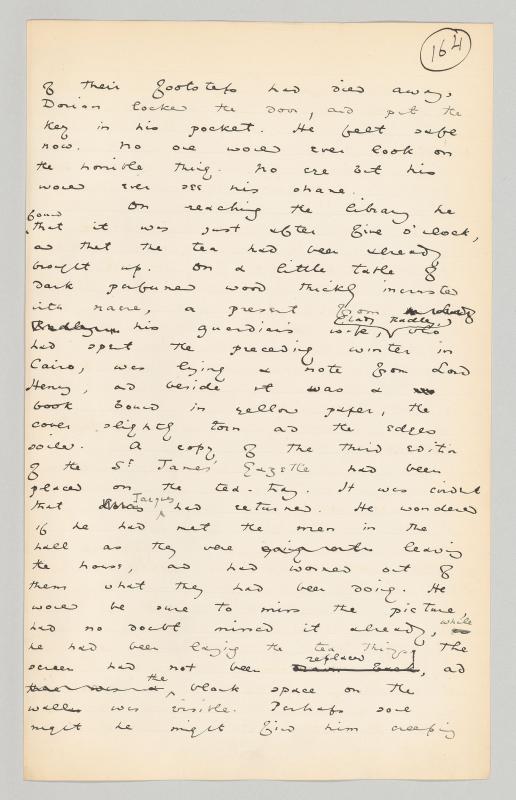 164
of their footsteps had died away,
Dorian locked the door, and put the
key in his pocket. He felt safe
now. No one would ever look on
the horrible thing. No eye but his
would ever see his shame.
On reaching the library he
found
that it was just after five o'clock,
and that the tea had been already
brought up. On a little table of
dark perfumed wood thickly incrusted
with nacre, a present from
Lady Radley,
his guardian's wife, who
had spent the preceding winter in
Cairo, was lying a note from Lord
Henry, and beside it was a
book bound in yellow paper, the
cover slightly torn and the edges
soiled. A copy of the third edition
of the St. James' Gazette had been
placed on the tea-tray. It was evident
Jacques
that had returned. He wondered
if he had met the men in the
hall as they were leaving
the house, and had wormed out of
them what they had been doing. He
would be sure to miss the picture,
had no doubt missed it already, while
he had been laying the tea things. The
replaced
screen had not been drawn back, and
the
blank space on the
wall was visible. Perhaps some
night he might find him creeping